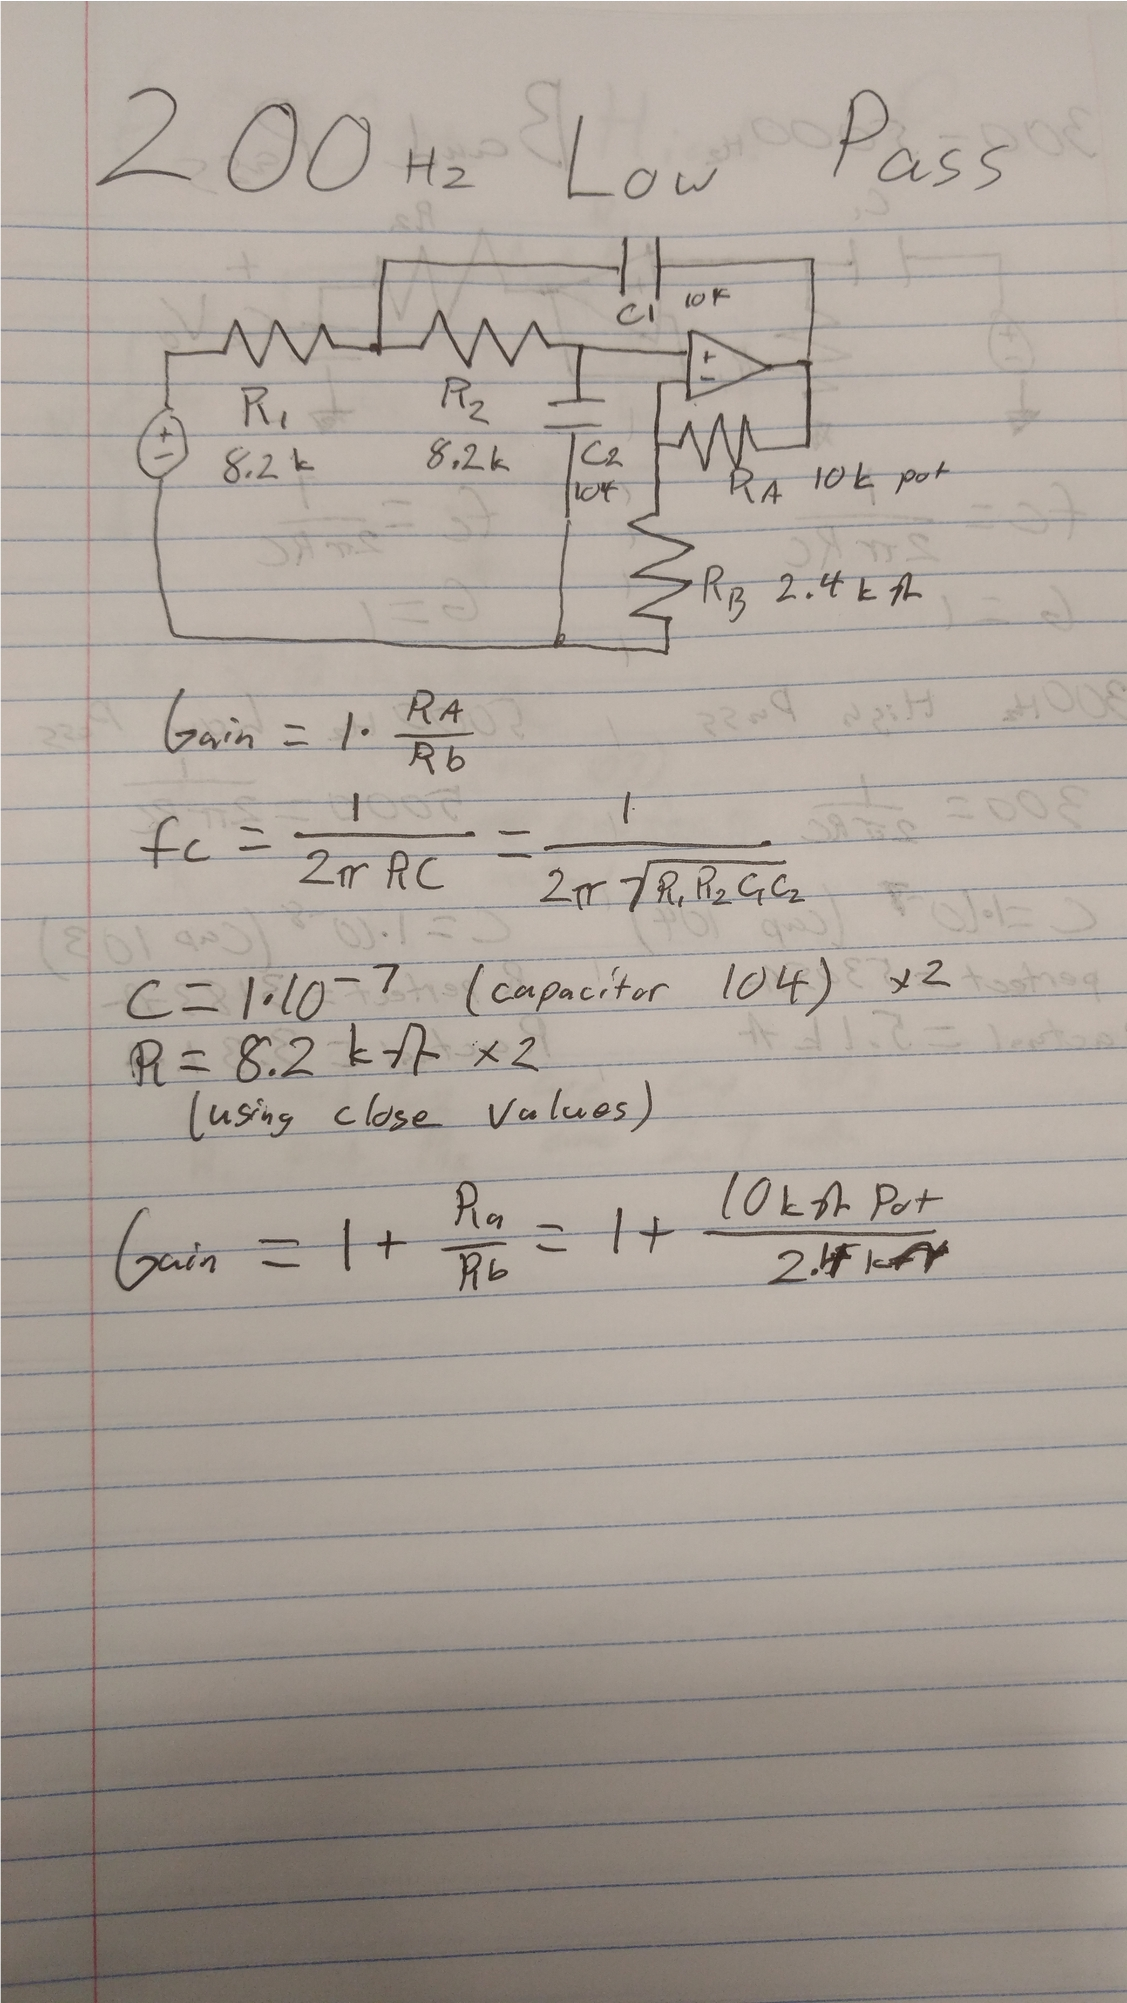 200 Hz Low Pass
C1 10K
+
-
R1
8.2 k
R2
8.2k
C2
104
+
-
RA 10k pot
RB 2.4 k Ω
Gain = 1 · RA / Rb
fc = 1 / 2π RC = 1 / 2π √R1 R2 C1 C2
C = 1·10^-7 (capacitor 104) x2
R = 8.2 kΩ x2
(using close values)
Gain = 1 + Ra / Rb = 1 + 10kΩ Pot / 2.4 kΩ